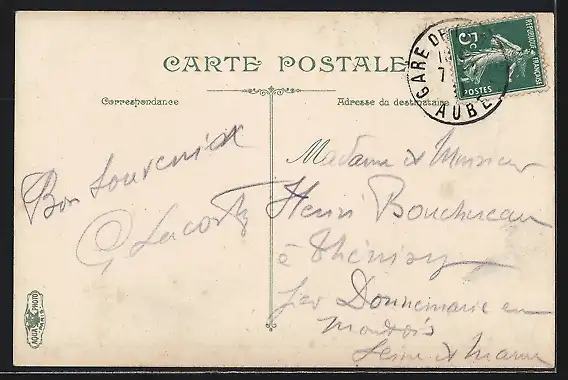 CARTE POSTALE
Correspondance
Adresse du destinataire
GARE DE
7
AUBE
5c
REPUBLIQUE FRANÇAISE
POSTES
Bon Souvenir
G Lacoste
Madame et Monsieur
Henri Bouchereau
à Thénisy
par Donnemarie en
Montois
Seine et Marne
AQUA PHOTO
PARIS